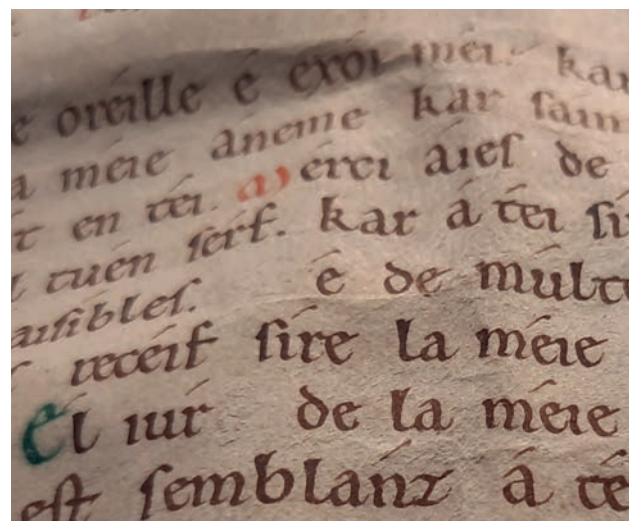 oreille é exói méi. kar
méie áneme kar sain
en téi. Mérci áies de
tuén serf. kar á téi si
aisibles. é de múlt
recéif sire la méie
El iur de la méie
est semblánz á té